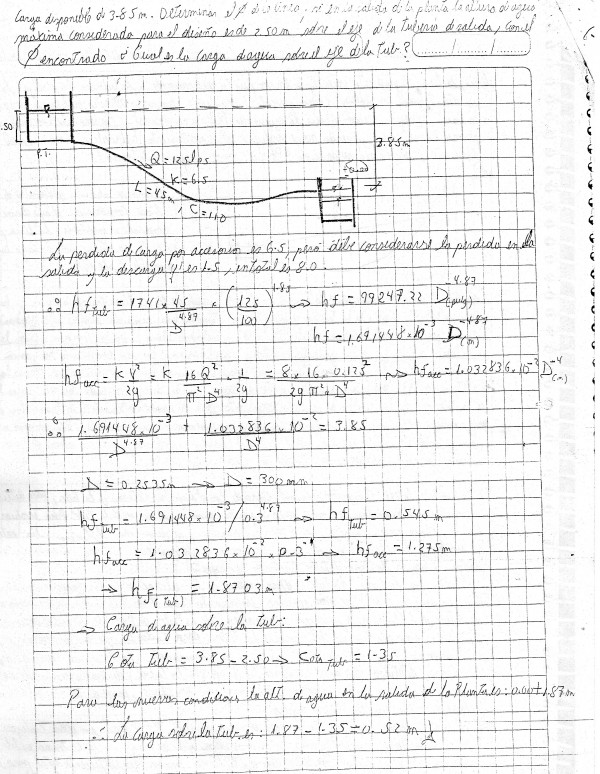 Carga disponible de 3.85 m. Determinar el Ø de la línea, si en la salida de la planta la altura de agua
máxima considerada para el diseño es de 2.50 m, sobre el eje de la Tubería de salida, con el
Ø encontrado ¿Cual es la carga de agua sobre el eje de la Tub.?
.50
3.85m
P.T.
Q = 125 lps
K = 6.5
L = 45m, C = 110
La perdida de carga por accesorios es 6.5, pero debe considerarse la perdida en la
salida y la descarga q' es 1.5, en total es 8.0.
∴ hf tub = 1741 × 45 / D^4.87 × (125/100)^1.85 → hf = 99247.22 D^-4.87 (pulg)
hf = 1.691448×10^-3 D^-4.87 (m)
hf acc = K V²/2g = K 16Q²/π²D⁴ · 1/2g = 8 × 16 × 0.125²/2g π² × D⁴ → hf acc = 1.032836×10^-2 D^-4 (m)
∴ 1.691448×10^-3 / D^4.87 + 1.032836×10^-2 / D^4 = 3.85
D = 0.2535m → D = 300 mm
hf Tub = 1.691448×10^-3 / 0.3^4.87 → hf Tub = 0.545 m
hf acc = 1.032836×10^-2 × 0.3^-4 → hf acc = 1.275 m
→ hf (Tub) = 1.8703 m
⇒ Carga de agua sobre la Tub:
Cota Tub = 3.85 - 2.50 → Cota Tub = 1.35
Para las nuevas condiciones la alt. de agua en la salida de la Planta es: 0.00 + 1.87m
∴ La Carga sobre la Tub. es: 1.87 - 1.35 = 0.52 m